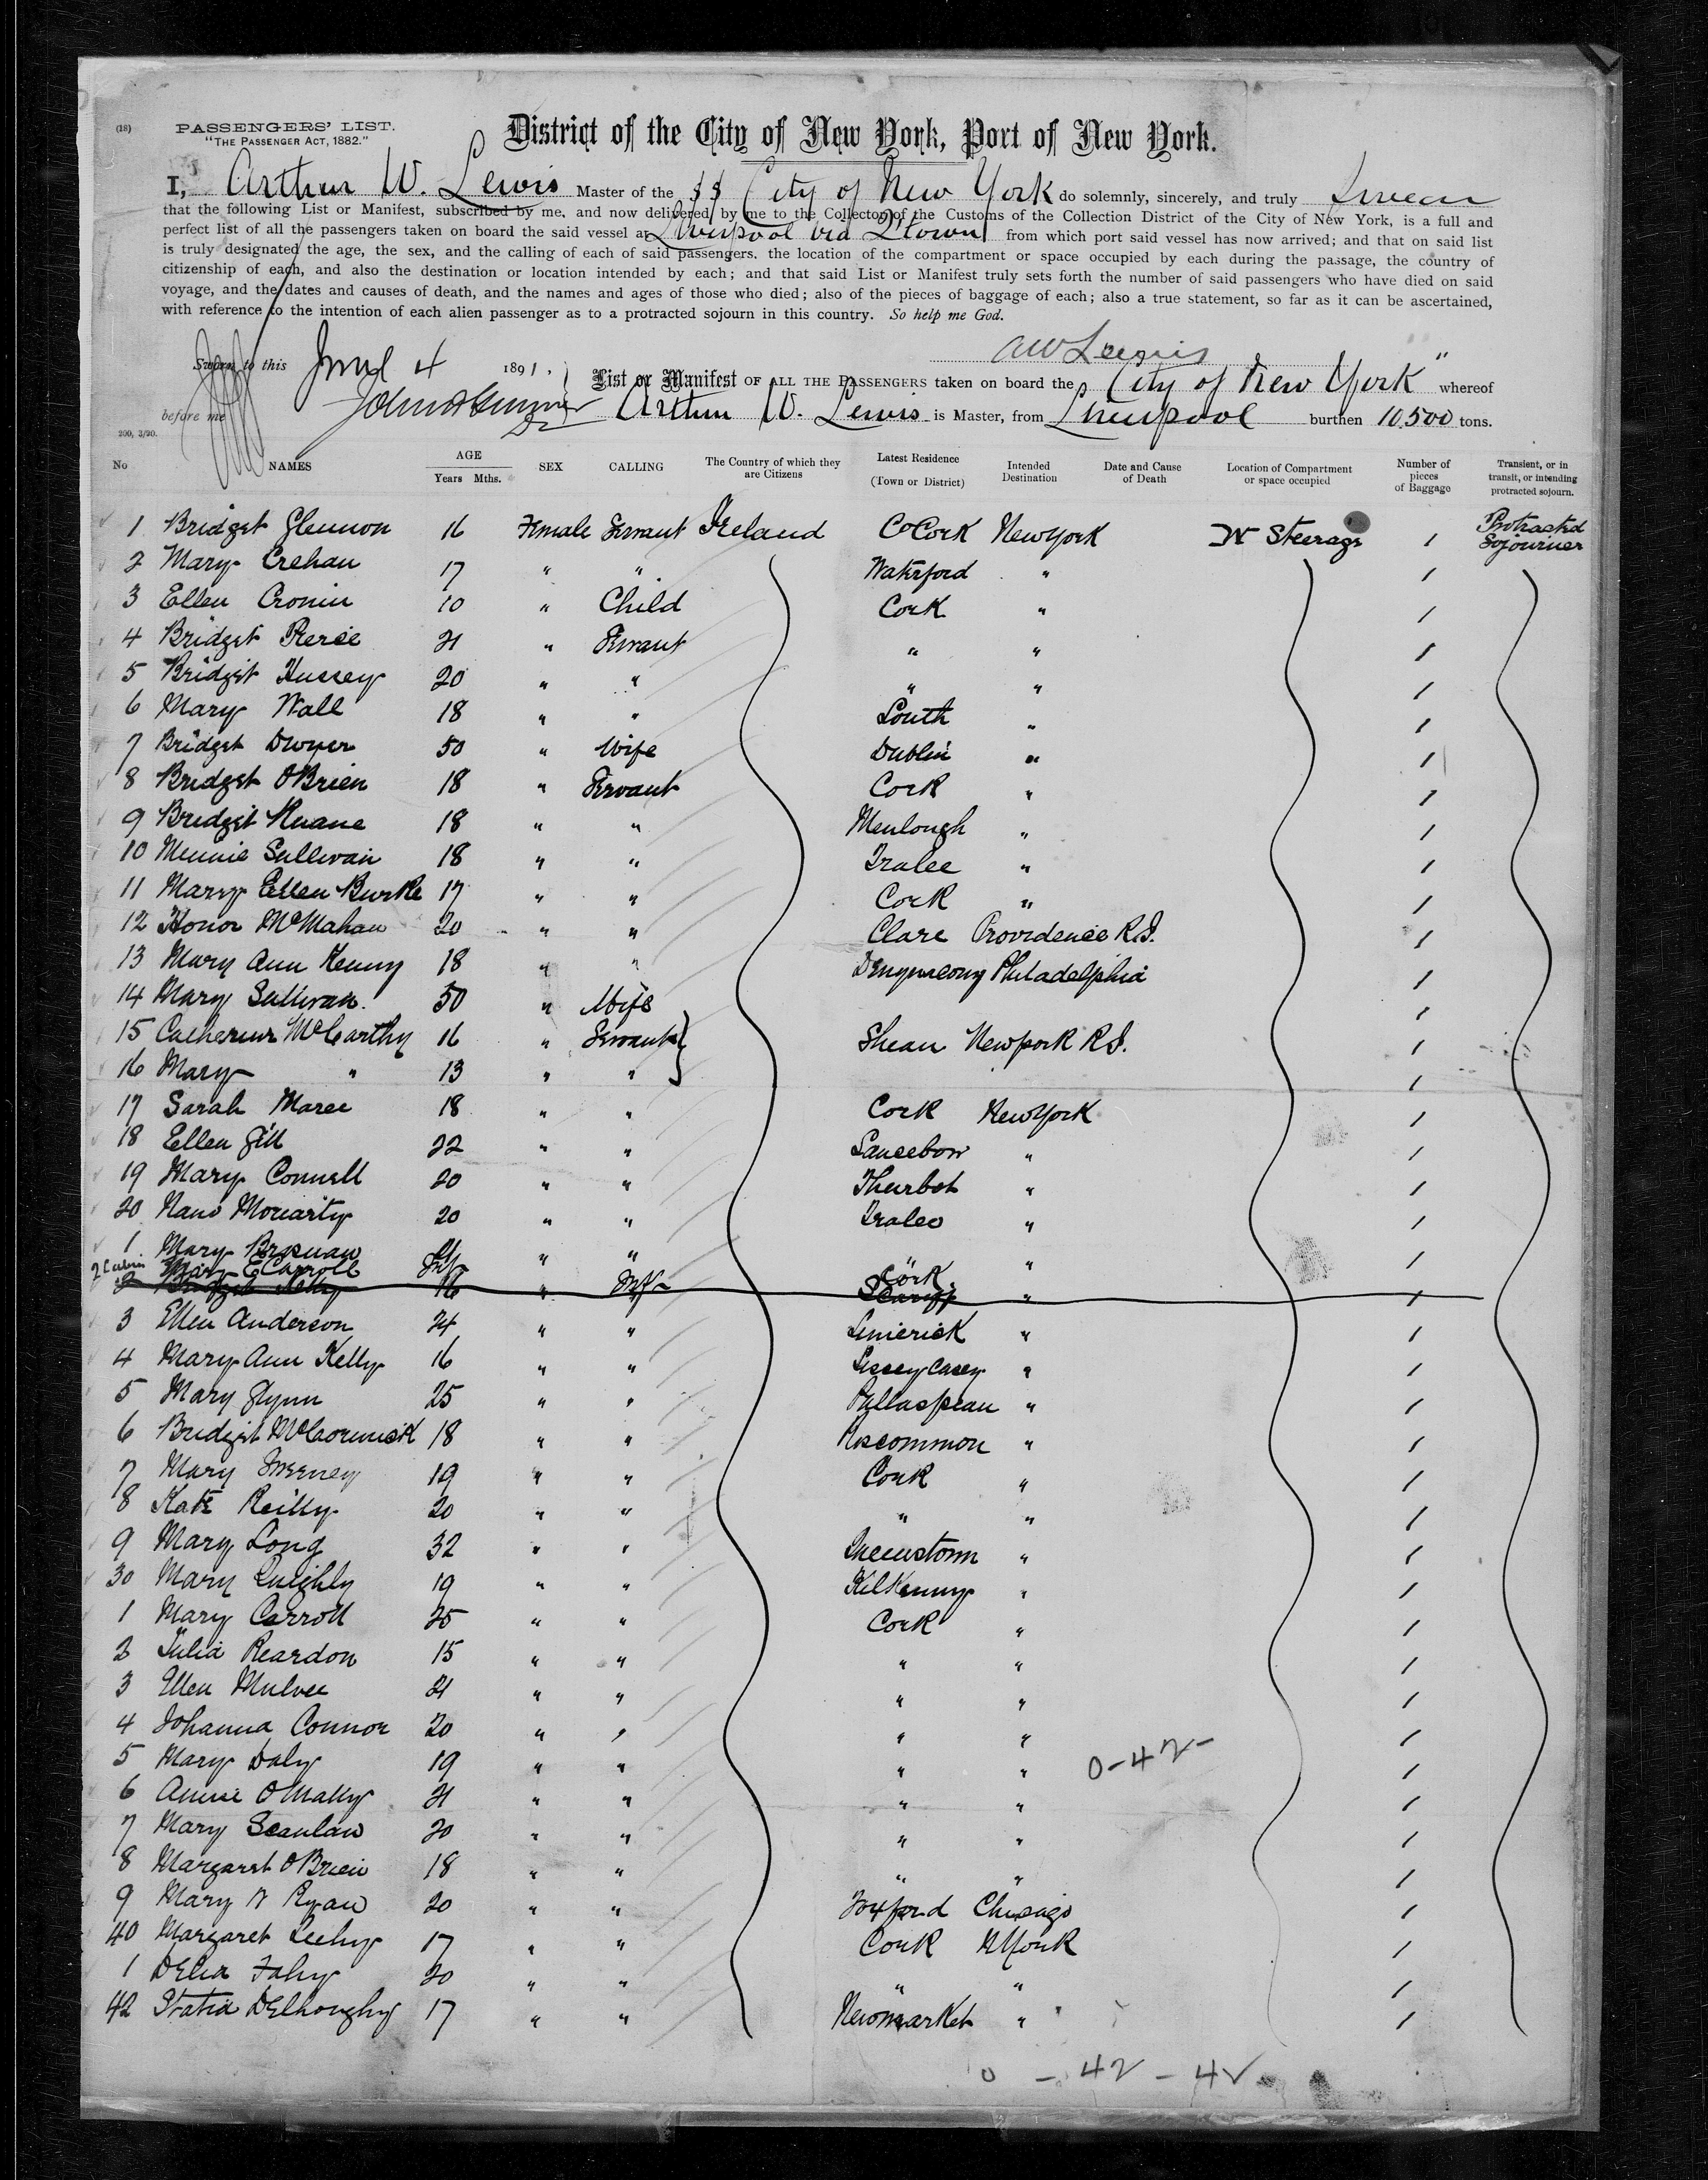 (18)
PASSENGERS' LIST.
"THE PASSENGER ACT, 1882."
District of the City of New York, Port of New York.
I, Arthur W. Lewis Master of the SS City of New York do solemnly, sincerely, and truly Swear
that the following List or Manifest, subscribed by me, and now delivered by me to the Collector of the Customs of the Collection District of the City of New York, is a full and
perfect list of all the passengers taken on board the said vessel at Liverpool via Q'town from which port said vessel has now arrived; and that on said list
is truly designated the age, the sex, and the calling of each of said passengers, the location of the compartment or space occupied by each during the passage, the country of
citizenship of each, and also the destination or location intended by each; and that said List or Manifest truly sets forth the number of said passengers who have died on said
voyage, and the dates and causes of death, and the names and ages of those who died; also of the pieces of baggage of each; also a true statement, so far as it can be ascertained,
with reference to the intention of each alien passenger as to a protracted sojourn in this country. So help me God.
AW Lewis
Sworn to this June 4 1891.
before me
List or Manifest OF ALL THE PASSENGERS taken on board the City of New York" whereof
Arthur W. Lewis is Master, from Liverpool burthen 10.500 tons.
200, 3/90.
No NAMES AGE Years Mths. SEX CALLING The Country of which they are Citizens Latest Residence (Town or District) Intended Destination Date and Cause of Death Location of Compartment or space occupied Number of pieces of Baggage Transient, or in transit, or intending protracted sojourn.
1 Bridget Glennon 16 Female Servant Ireland Co Cork New York Steerage 1 Protracted Sojourner
2 Mary Crehan 17 " " Waterford " 1
3 Ellen Cronin 10 " Child Cork " 1
4 Bridget Pierce 21 " Servant " " 1
5 Bridget Hussey 20 " " " " 1
6 Mary Wall 18 " " Louth " 1
7 Bridget Dwyer 50 " Wife Dublin " 1
8 Bridget OBrien 18 " Servant Cork " 1
9 Bridget Ruane 18 " " Menlough " 1
10 Minnie Sullivan 18 " " Tralee " 1
11 Mary Ellen Burke 17 " " Cork " 1
12 Honor McMahan 20 " " Clare Providence R.I. 1
13 Mary Ann Kenny 18 " " Philadelphia 1
14 Mary Sullivan 50 " Wife 1
15 Catherine McCarthy 16 " Servant Shean Newport R.I. 1
16 Mary " 13 " " 1
17 Sarah Maree 18 " " Cork New York 1
18 Ellen Gill 22 " " " 1
19 Mary Connell 20 " " " 1
20 Nano Moriarty 20 " " Tralee " 1
1 Mary Brosnan 21 " " Cork " 1
2 Cabin Mary E Carroll Inf
2 Bridget 16 " Inf Scariff " 1
3 Ellen Anderson 24 " " Limerick " 1
4 Mary Ann Kelly 16 " " Lisseycasey " 1
5 Mary Glynn 25 " " " 1
6 Bridget McCormick 18 " " Roscommon " 1
7 Mary Sweeney 19 " " Cork " 1
8 Kate Reilly 20 " " " " 1
9 Mary Long 32 " " Queenstown " 1
30 Mary Quighly 19 " " Kilkenny " 1
1 Mary Carroll 25 " " Cork " 1
2 Julia Reardon 15 " " " " 1
3 Ellen Mulvee 21 " " " " 1
4 Johanna Connor 20 " " " " 1
5 Mary Daly 19 " " " " 1
0-42-
6 Annie OMally 21 " " " " 1
7 Mary Scanlan 20 " " " " 1
8 Margaret OBrien 18 " " " " 1
9 Mary Ryan 20 " " Foxford Chicago 1
40 Margaret Leehy 17 " " Cork NYork 1
1 Delia Fahy 20 " " " " 1
42 Statia 17 " " Newmarket " 1
0 - 42 - 4